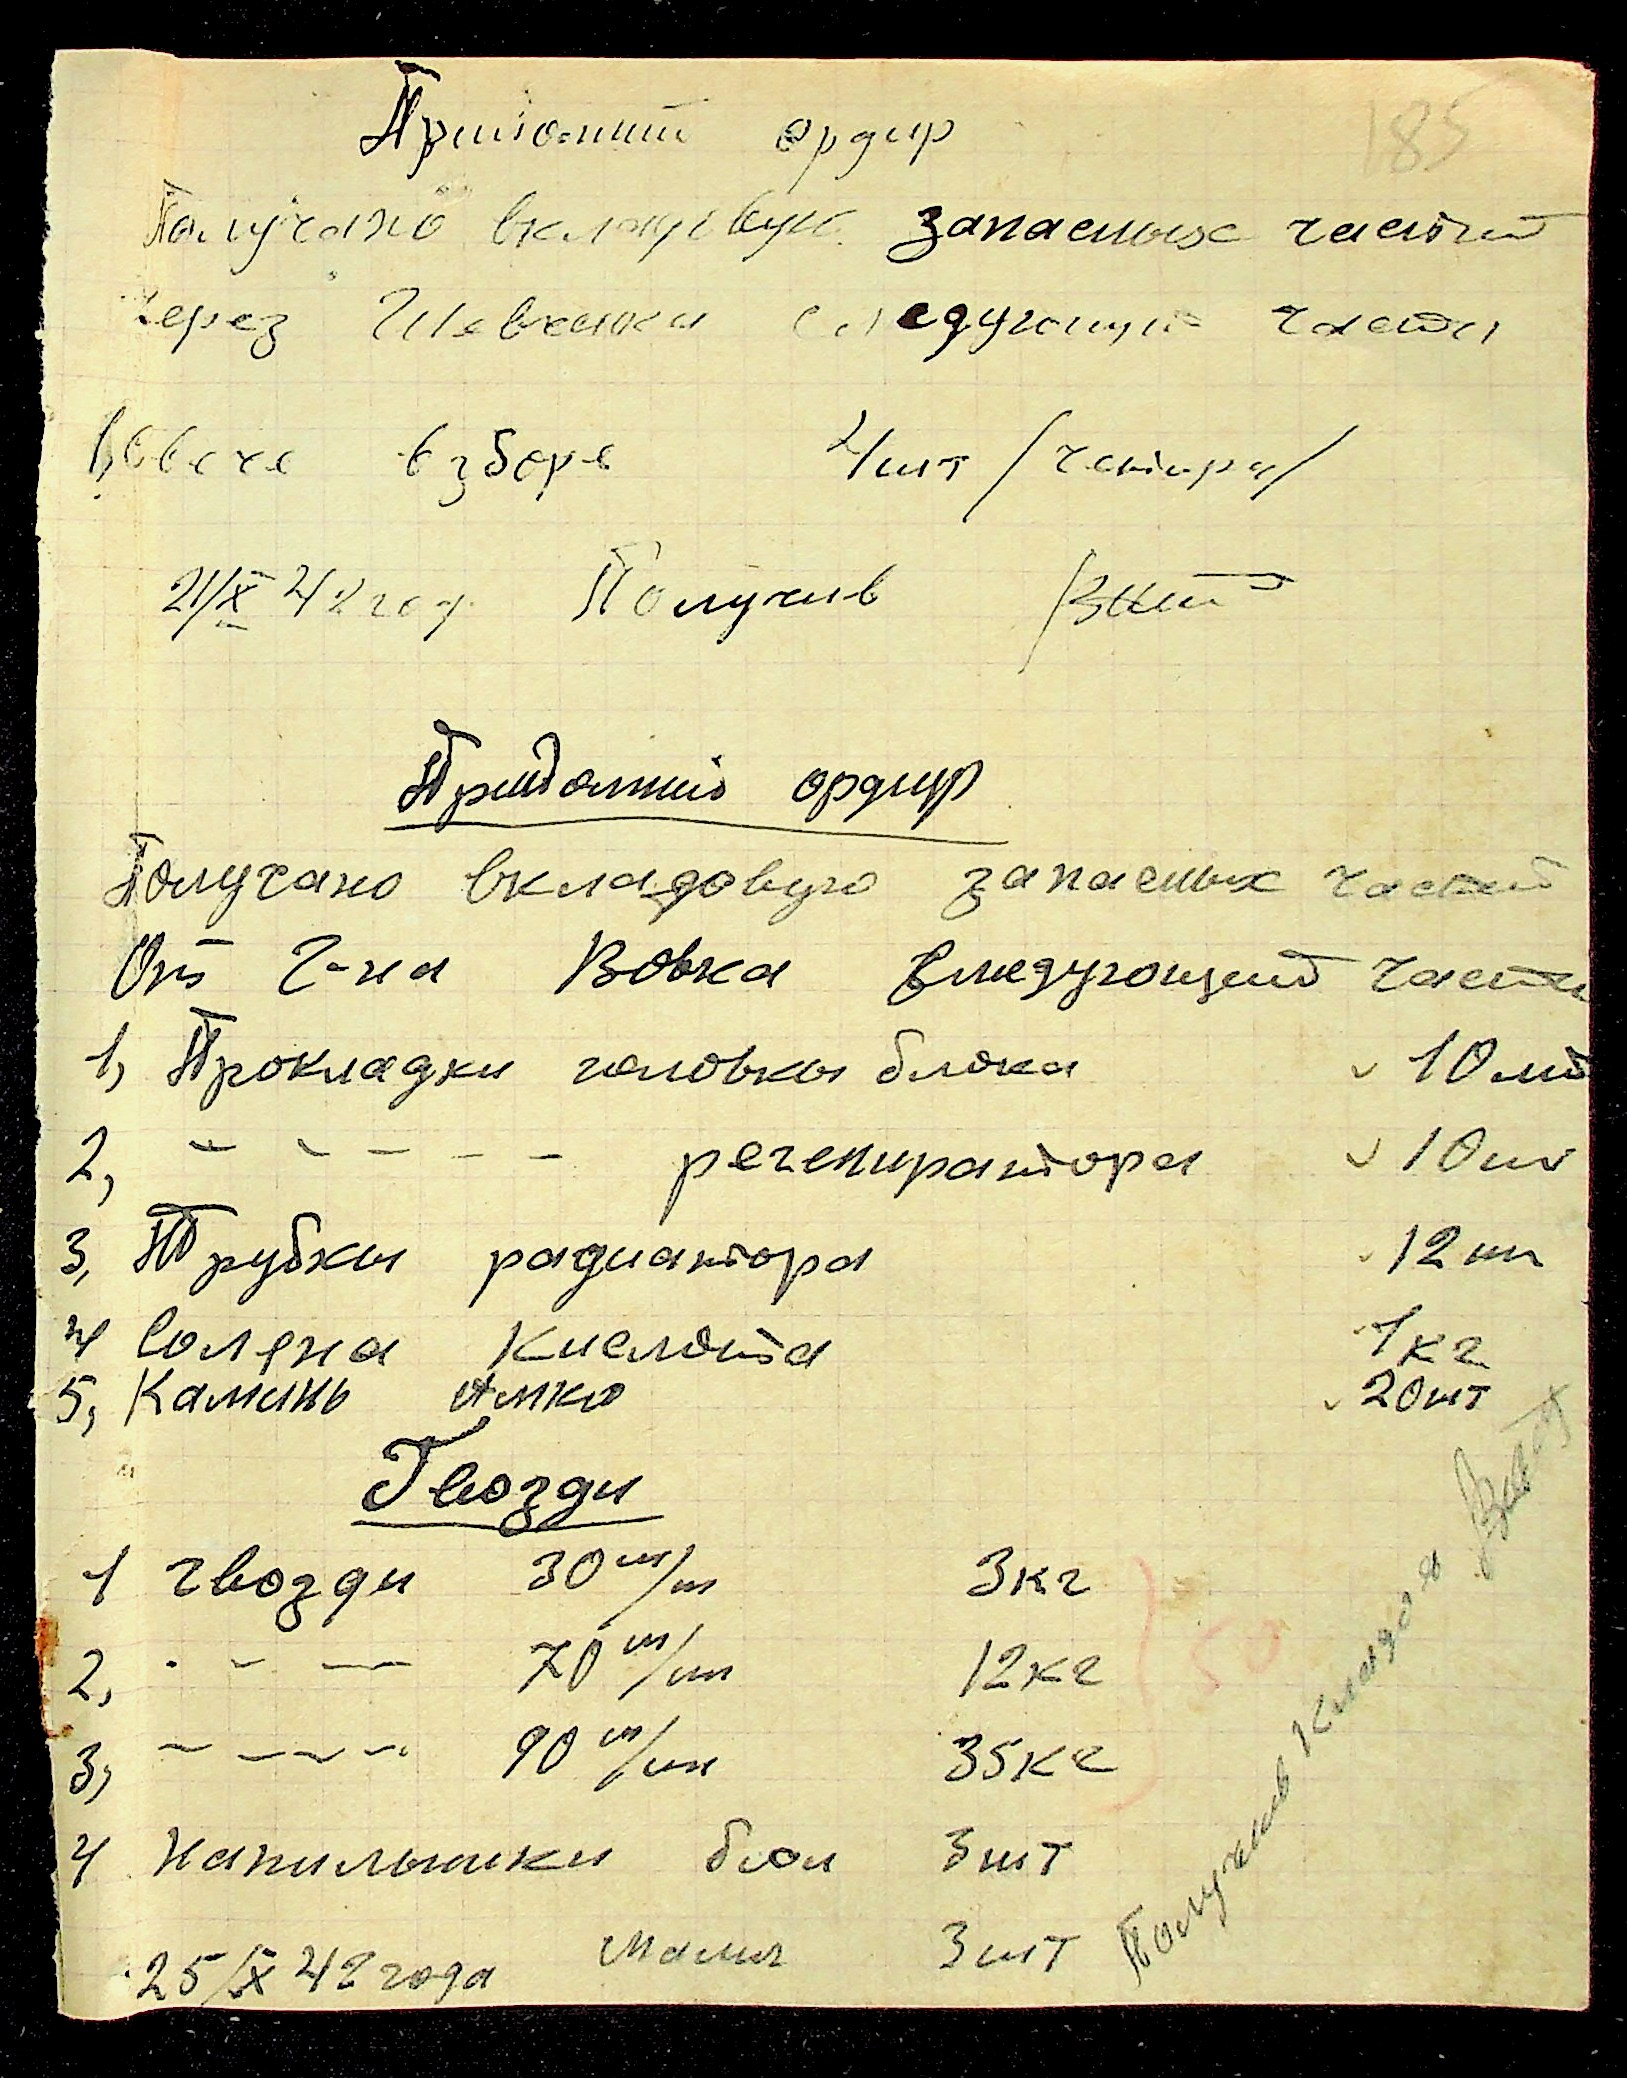 185
Приходний ордир
Получано вкладовую запасных частий
Через Шевченка следующий части
4шт /четыри/
21/X 42 год Получив
Приходний ордир
Получано вкладовую запасных частий
От г-на Вовка следующий части
1, Прокладки головки блока 10шт
2, – – – – – регениратора 10шт
3, Трубки радиатора 12шт
4 Соляна кислота 1кг
5, Каминь 20шт
Гвозди
1 гвозди 30 м/м 3кг
2, – – – 70 м/м 12кг
3, – – – – 90 м/м 35кг
50
4 Напильники бол 3шт
малы 3шт
25/X 42 года
Получив Кладовя